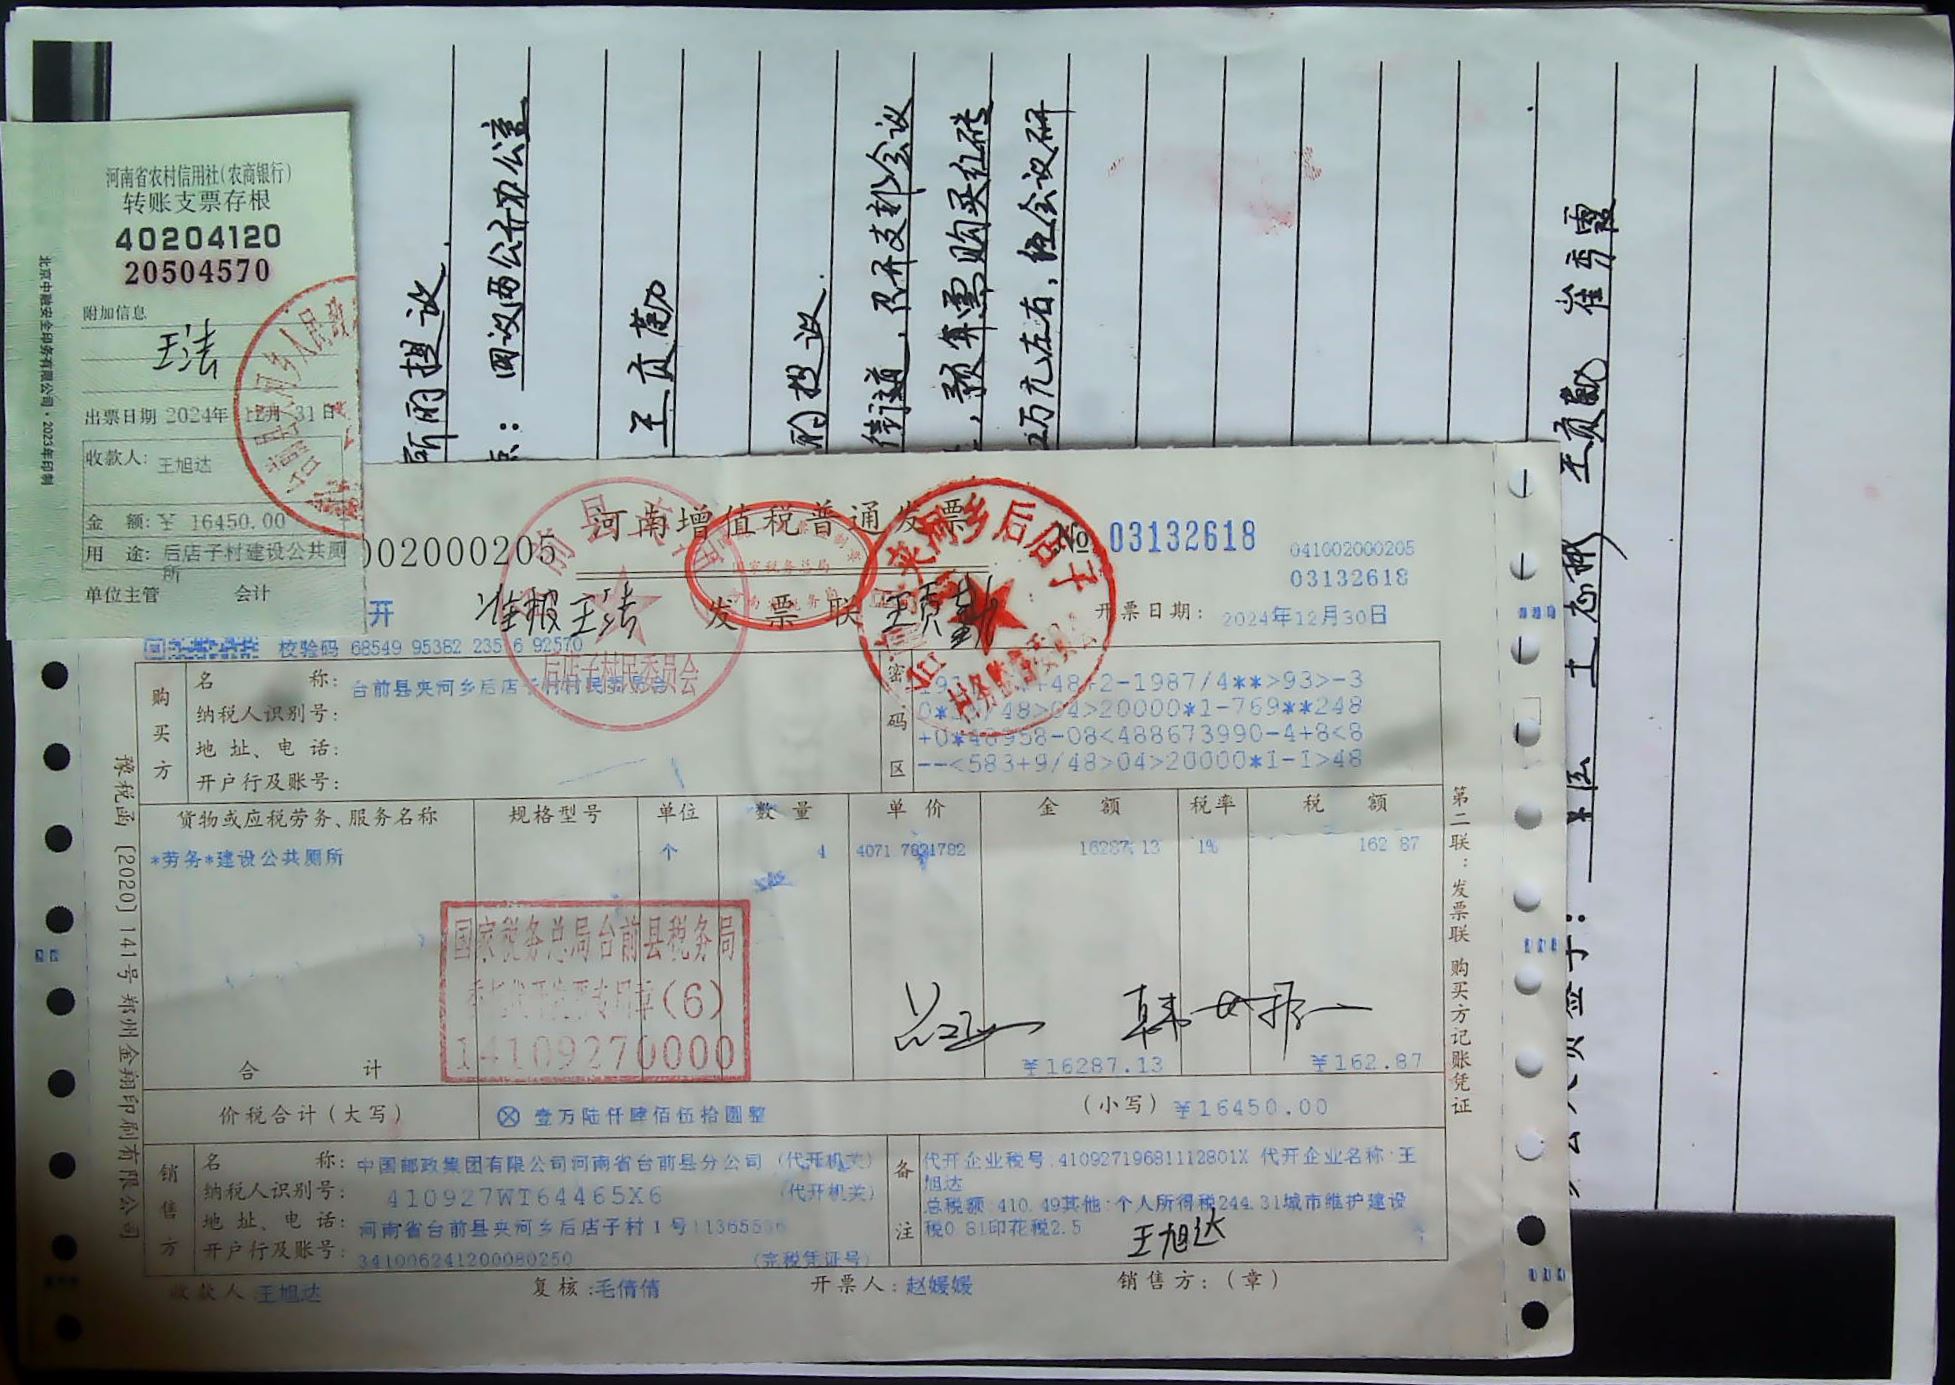 河南省农村信用社(农商银行)
转账支票存根
40204120
20504570
附加信息
王浩
出票日期 2024年 12月 31日
收款人: 王旭达
金 额: ¥ 16450.00
用 途: 后店子村建设公共厕
所
单位主管 会计
北京中融安全印务有限公司·2023年印制
所的提议
四议两公开办公室
的提议
街道,召开支部会议
,预算需购买红砖
2万元左右,经会议研
002000205
河南增值税普通发票
发 票 联
№ 03132618
041002000205
03132618
开票日期: 2024年12月30日
开
准报 王浩
校验码 68549 95382 23516 92570
后店子村民委员会
夹河乡后店子
村务监督委员会
购买方
名 称: 台前县夹河乡后店子村村民委员会
纳税人识别号:
地 址、电 话:
开户行及账号:
密码区
+0*46958-08<488673990-4+8<8
--<583+9/48>04>20000*1-1>48
货物或应税劳务、服务名称 规格型号 单位 数 量 单 价 金 额 税率 税 额
*劳务*建设公共厕所 个 4 4071.7821782 16287.13 1% 162.87
国家税务总局台前县税务局
委托代开发票专用章(6)
14109270000
合 计 ¥16287.13 ¥162.87
价税合计(大写) ⊗ 壹万陆仟肆佰伍拾圆整 (小写) ¥16450.00
销售方
名 称: 中国邮政集团有限公司河南省台前县分公司 (代开机关)
纳税人识别号: 410927WT64465X6 (代开机关)
地 址、电 话: 河南省台前县夹河乡后店子村1号
开户行及账号: 341006241200080250 (完税凭证号)
备注
代开企业税号:41092719681112801X 代开企业名称:王
旭达
总税额:410.49其他:个人所得税244.31城市维护建设
税0.81印花税2.5
王旭达
收款人:王旭达 复核:毛倩倩 开票人:赵媛媛 销售方:(章)
豫税函〔2020〕141号 郑州金翔印刷有限公司
第二联:发票联 购买方记账凭证